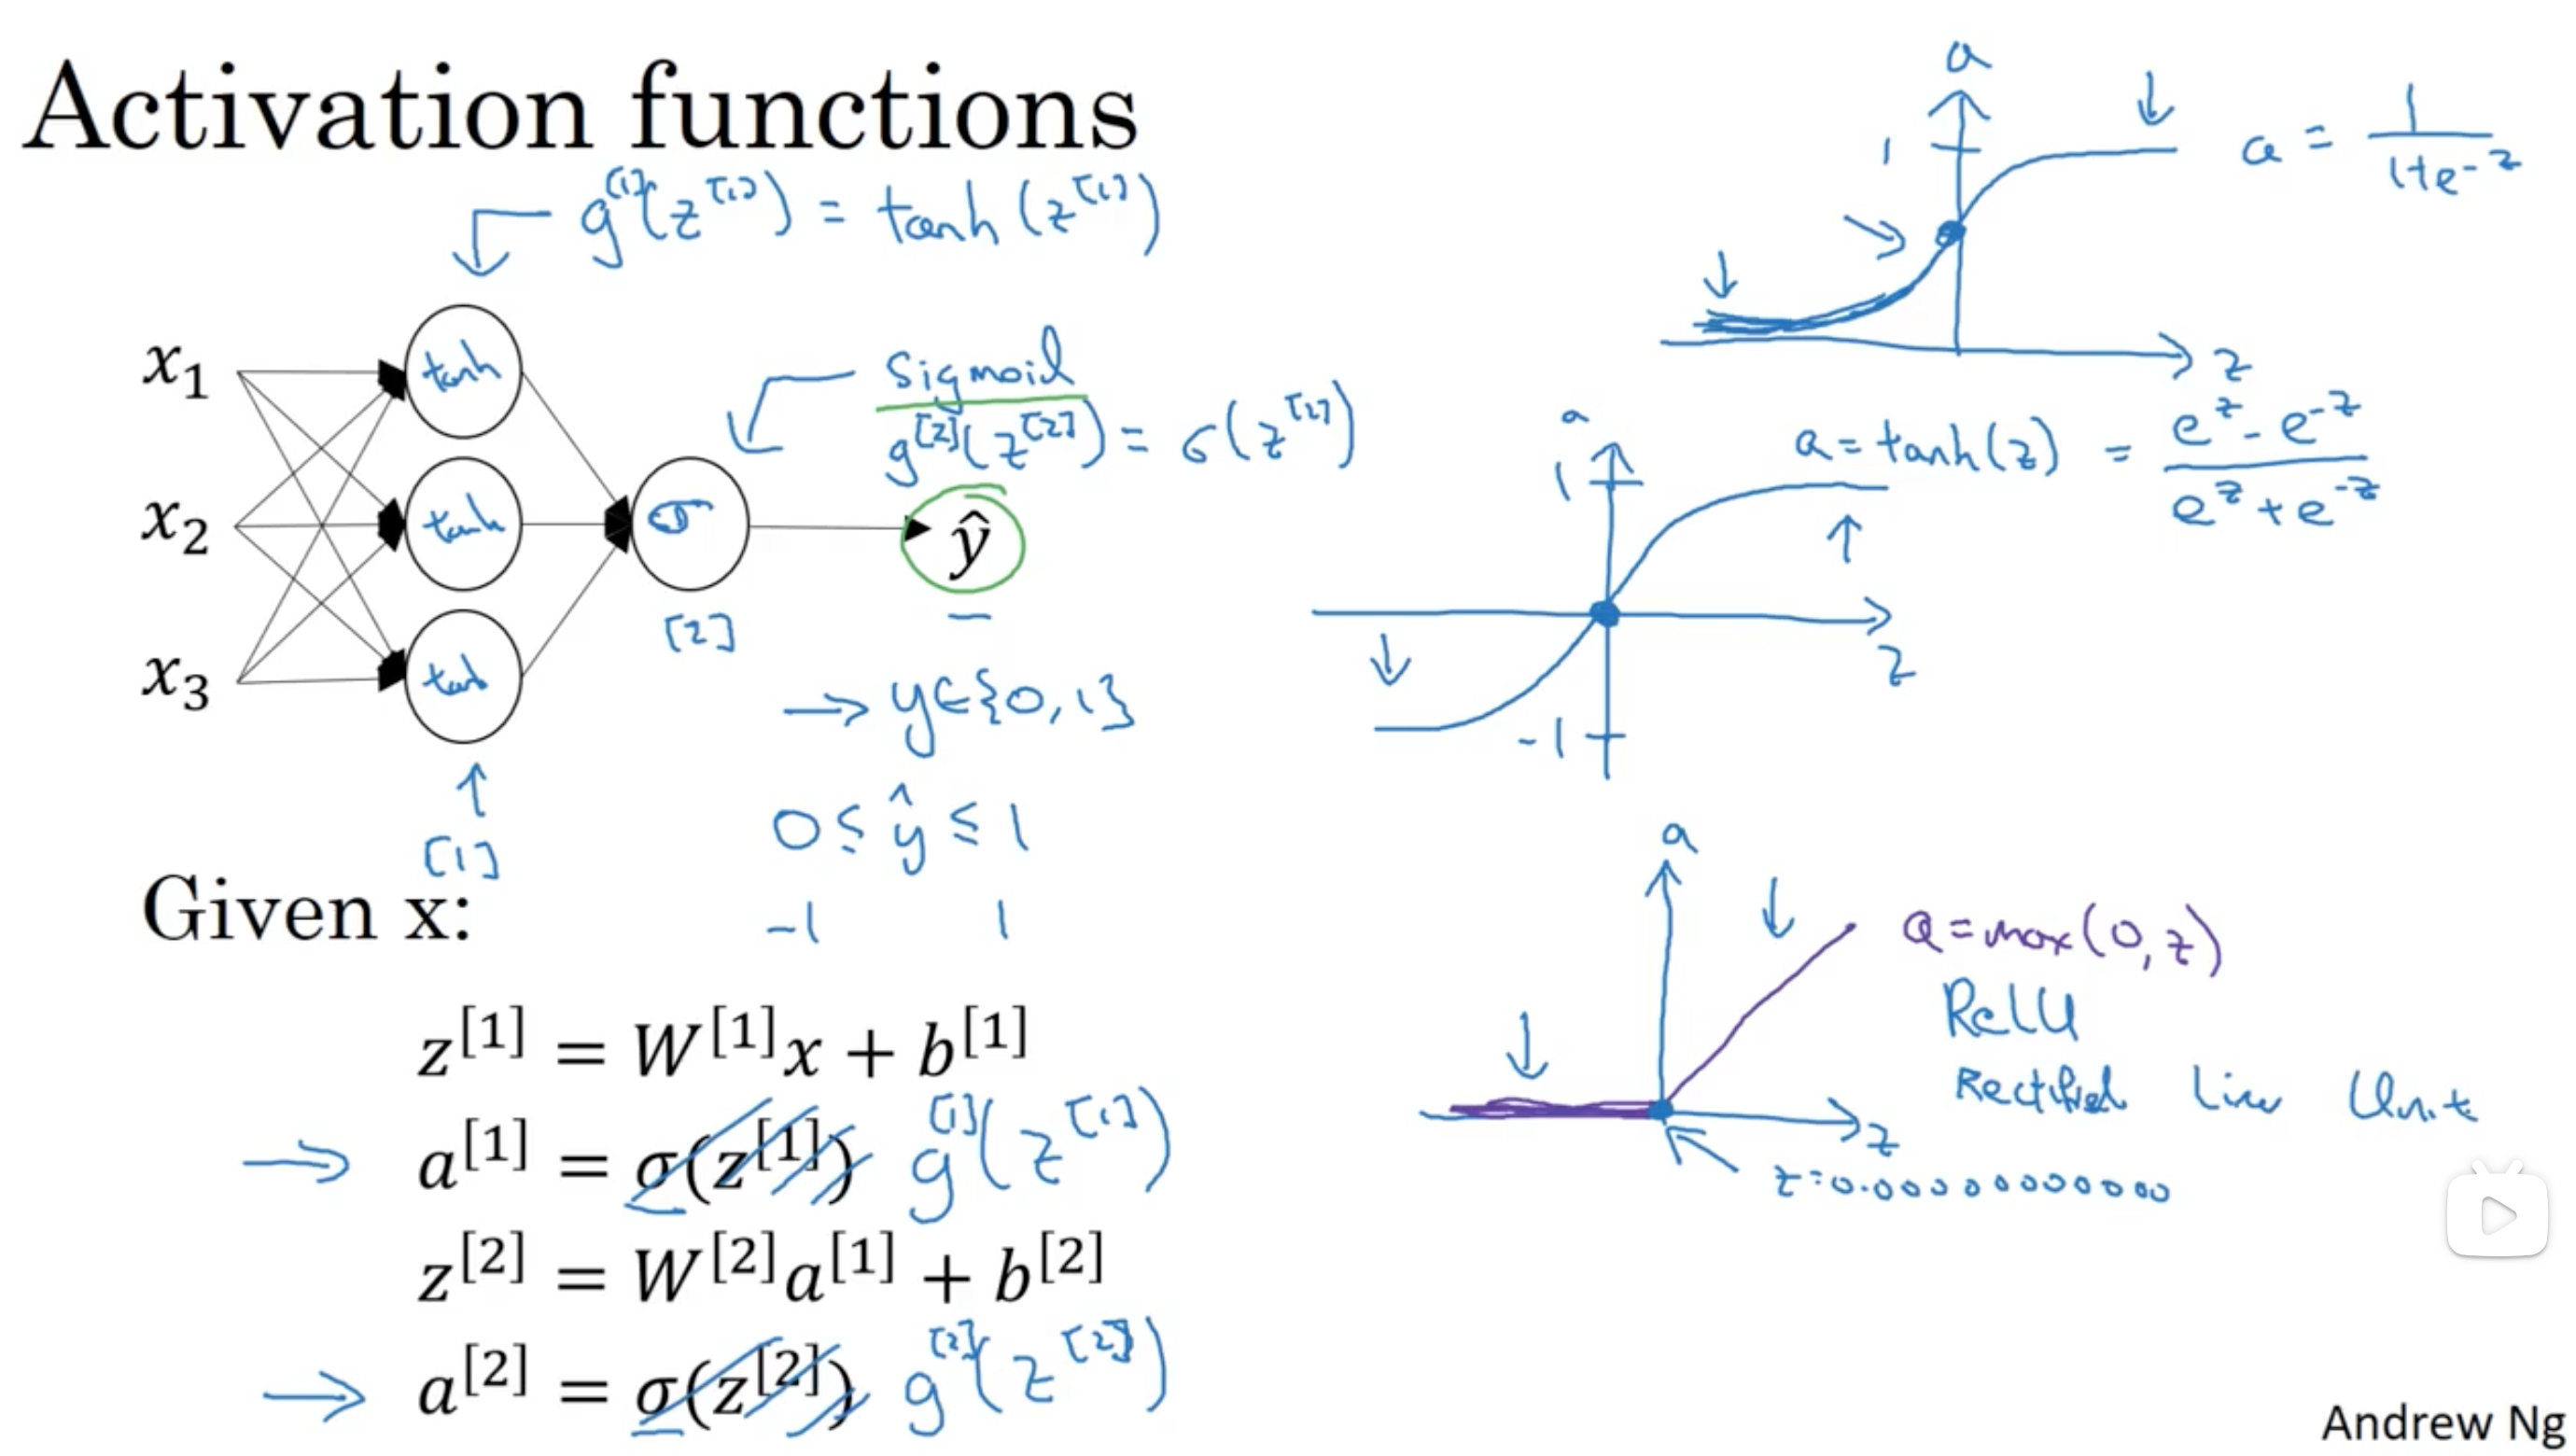 Activation functions
g^[1](z^[1]) = tanh(z^[1])
x₁
x₂
x₃
tanh
tanh
tanh
[1]
σ
[2]
Sigmoid
g^[2](z^[2]) = σ(z^[2])
ŷ
→ y∈{0,1}
0 ≤ ŷ ≤ 1
-1 1
Given x:
z^[1] = W^[1]x + b^[1]
⇒ a^[1] = σ(z^[1]) g^[1](z^[1])
z^[2] = W^[2]a^[1] + b^[2]
⇒ a^[2] = σ(z^[2]) g^[2](z^[2])
a
1
z
a = 1/(1+e^-z)
a
1
-1
z
a = tanh(z) = (e^z - e^-z)/(e^z + e^-z)
a
z
a = max(0,z)
ReLU
Rectified Linear Unit
z=0.00000000000
Andrew Ng